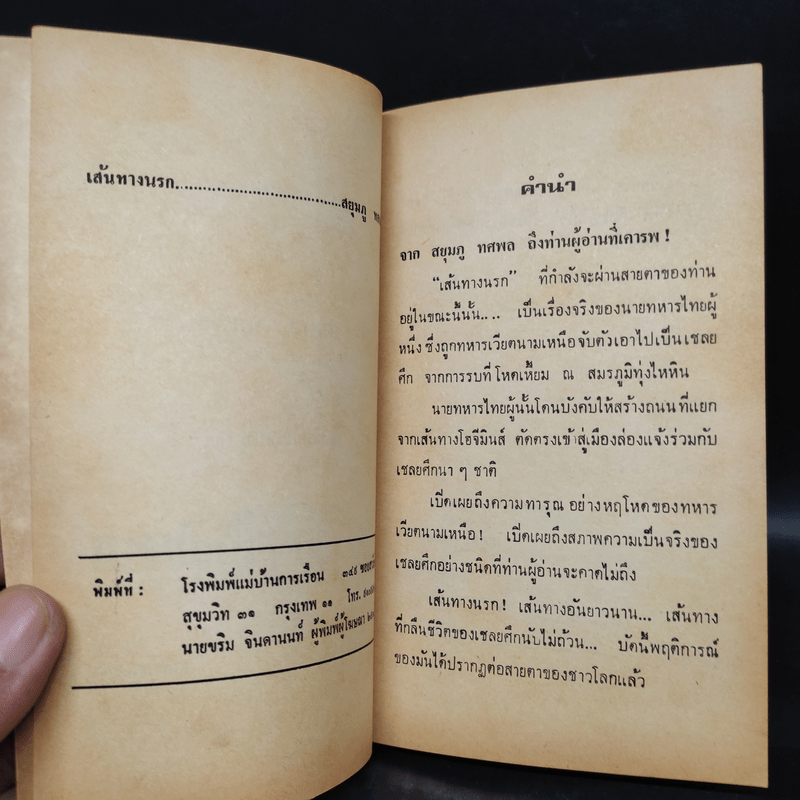 เส้นทางนรก....................................สยุมภู
พิมพ์ที่ : โรงพิมพ์แม่บ้านการเรือน ๓๔๙
สุขุมวิท ๓๑ กรุงเทพ ๑๑ โทร.
นายขริม จินดานนท์ ผู้พิมพ์ผู้โฆษณา
คำนำ
จาก สยุมภู ทศพล ถึงท่านผู้อ่านที่เคารพ !
“เส้นทางนรก” ที่กำลังจะผ่านสายตาของท่าน
อยู่ในขณะนี้นั้น.... เป็นเรื่องจริงของนายทหารไทยผู้
หนึ่ง ซึ่งถูกทหารเวียตนามเหนือจับตัวเอาไปเป็นเชลย
ศึก จากการรบที่โหดเหี้ยม ณ สมรภูมิทุ่งไหหิน
นายทหารไทยผู้นั้นโดนบังคับให้สร้างถนนที่แยก
จากเส้นทางโฮจีมินส์ ตัดตรงเข้าสู่เมืองล่องแจ้งร่วมกับ
เชลยศึกนา ๆ ชาติ
เปิดเผยถึงความทารุณ อย่างหฤโหดของทหาร
เวียตนามเหนือ ! เปิดเผยถึงสภาพความเป็นจริงของ
เชลยศึกอย่างชนิดที่ท่านผู้อ่านจะคาดไม่ถึง
เส้นทางนรก ! เส้นทางอันยาวนาน... เส้นทาง
ที่กลืนชีวิตของเชลยศึกนับไม่ถ้วน... บัดนี้พฤติการณ์
ของมันได้ปรากฏต่อสายตาของชาวโลกแล้ว